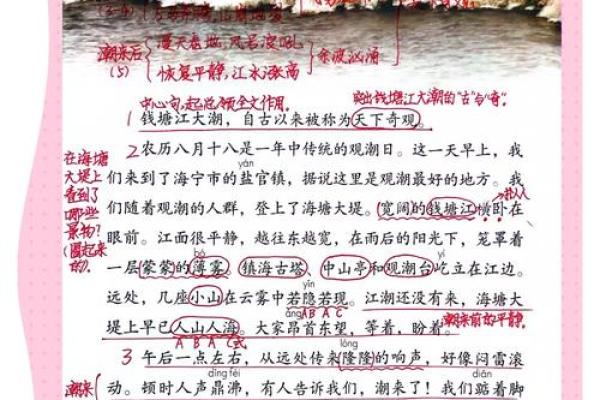 潮来后 漫天卷地,风号浪吼 余波汹涌
(5) 恢复平静,江水涨高
中心句,起总领全文作用。 突出钱塘江大潮的“古”与“奇”。
1 钱塘江大潮,自古以来被称为天下奇观。
2 农历八月十八是一年中传统的观潮日。这一天早上,我
yán
们来到了海宁市的盐官镇,据说这里是观潮最好的地方。我
在海塘大堤上看到了哪些景物?(圈起来的)。
拟人
们随着观潮的人群,登上了海塘大堤。宽阔的钱塘江横卧在
眼前。江面很平静,越往东越宽,在雨后的阳光下,笼罩着
bó yì
一层蒙蒙的薄雾。镇海古塔、中山亭和观潮台屹立在江边。
yǐn
远处,几座小山在云雾中若隐若现。江潮还没有来,海塘大
áng A B A C
堤上早已人山人海。大家昂首东望,等着,盼着。 潮来前的平静。
A B A C 式
lóng
3 午后一点左右,从远处传来隆隆的响声,好像闷雷滚
dǐng fèi diǎn
潮来 动。顿时人声鼎沸,有人告诉我们,潮来了!我们踮着脚